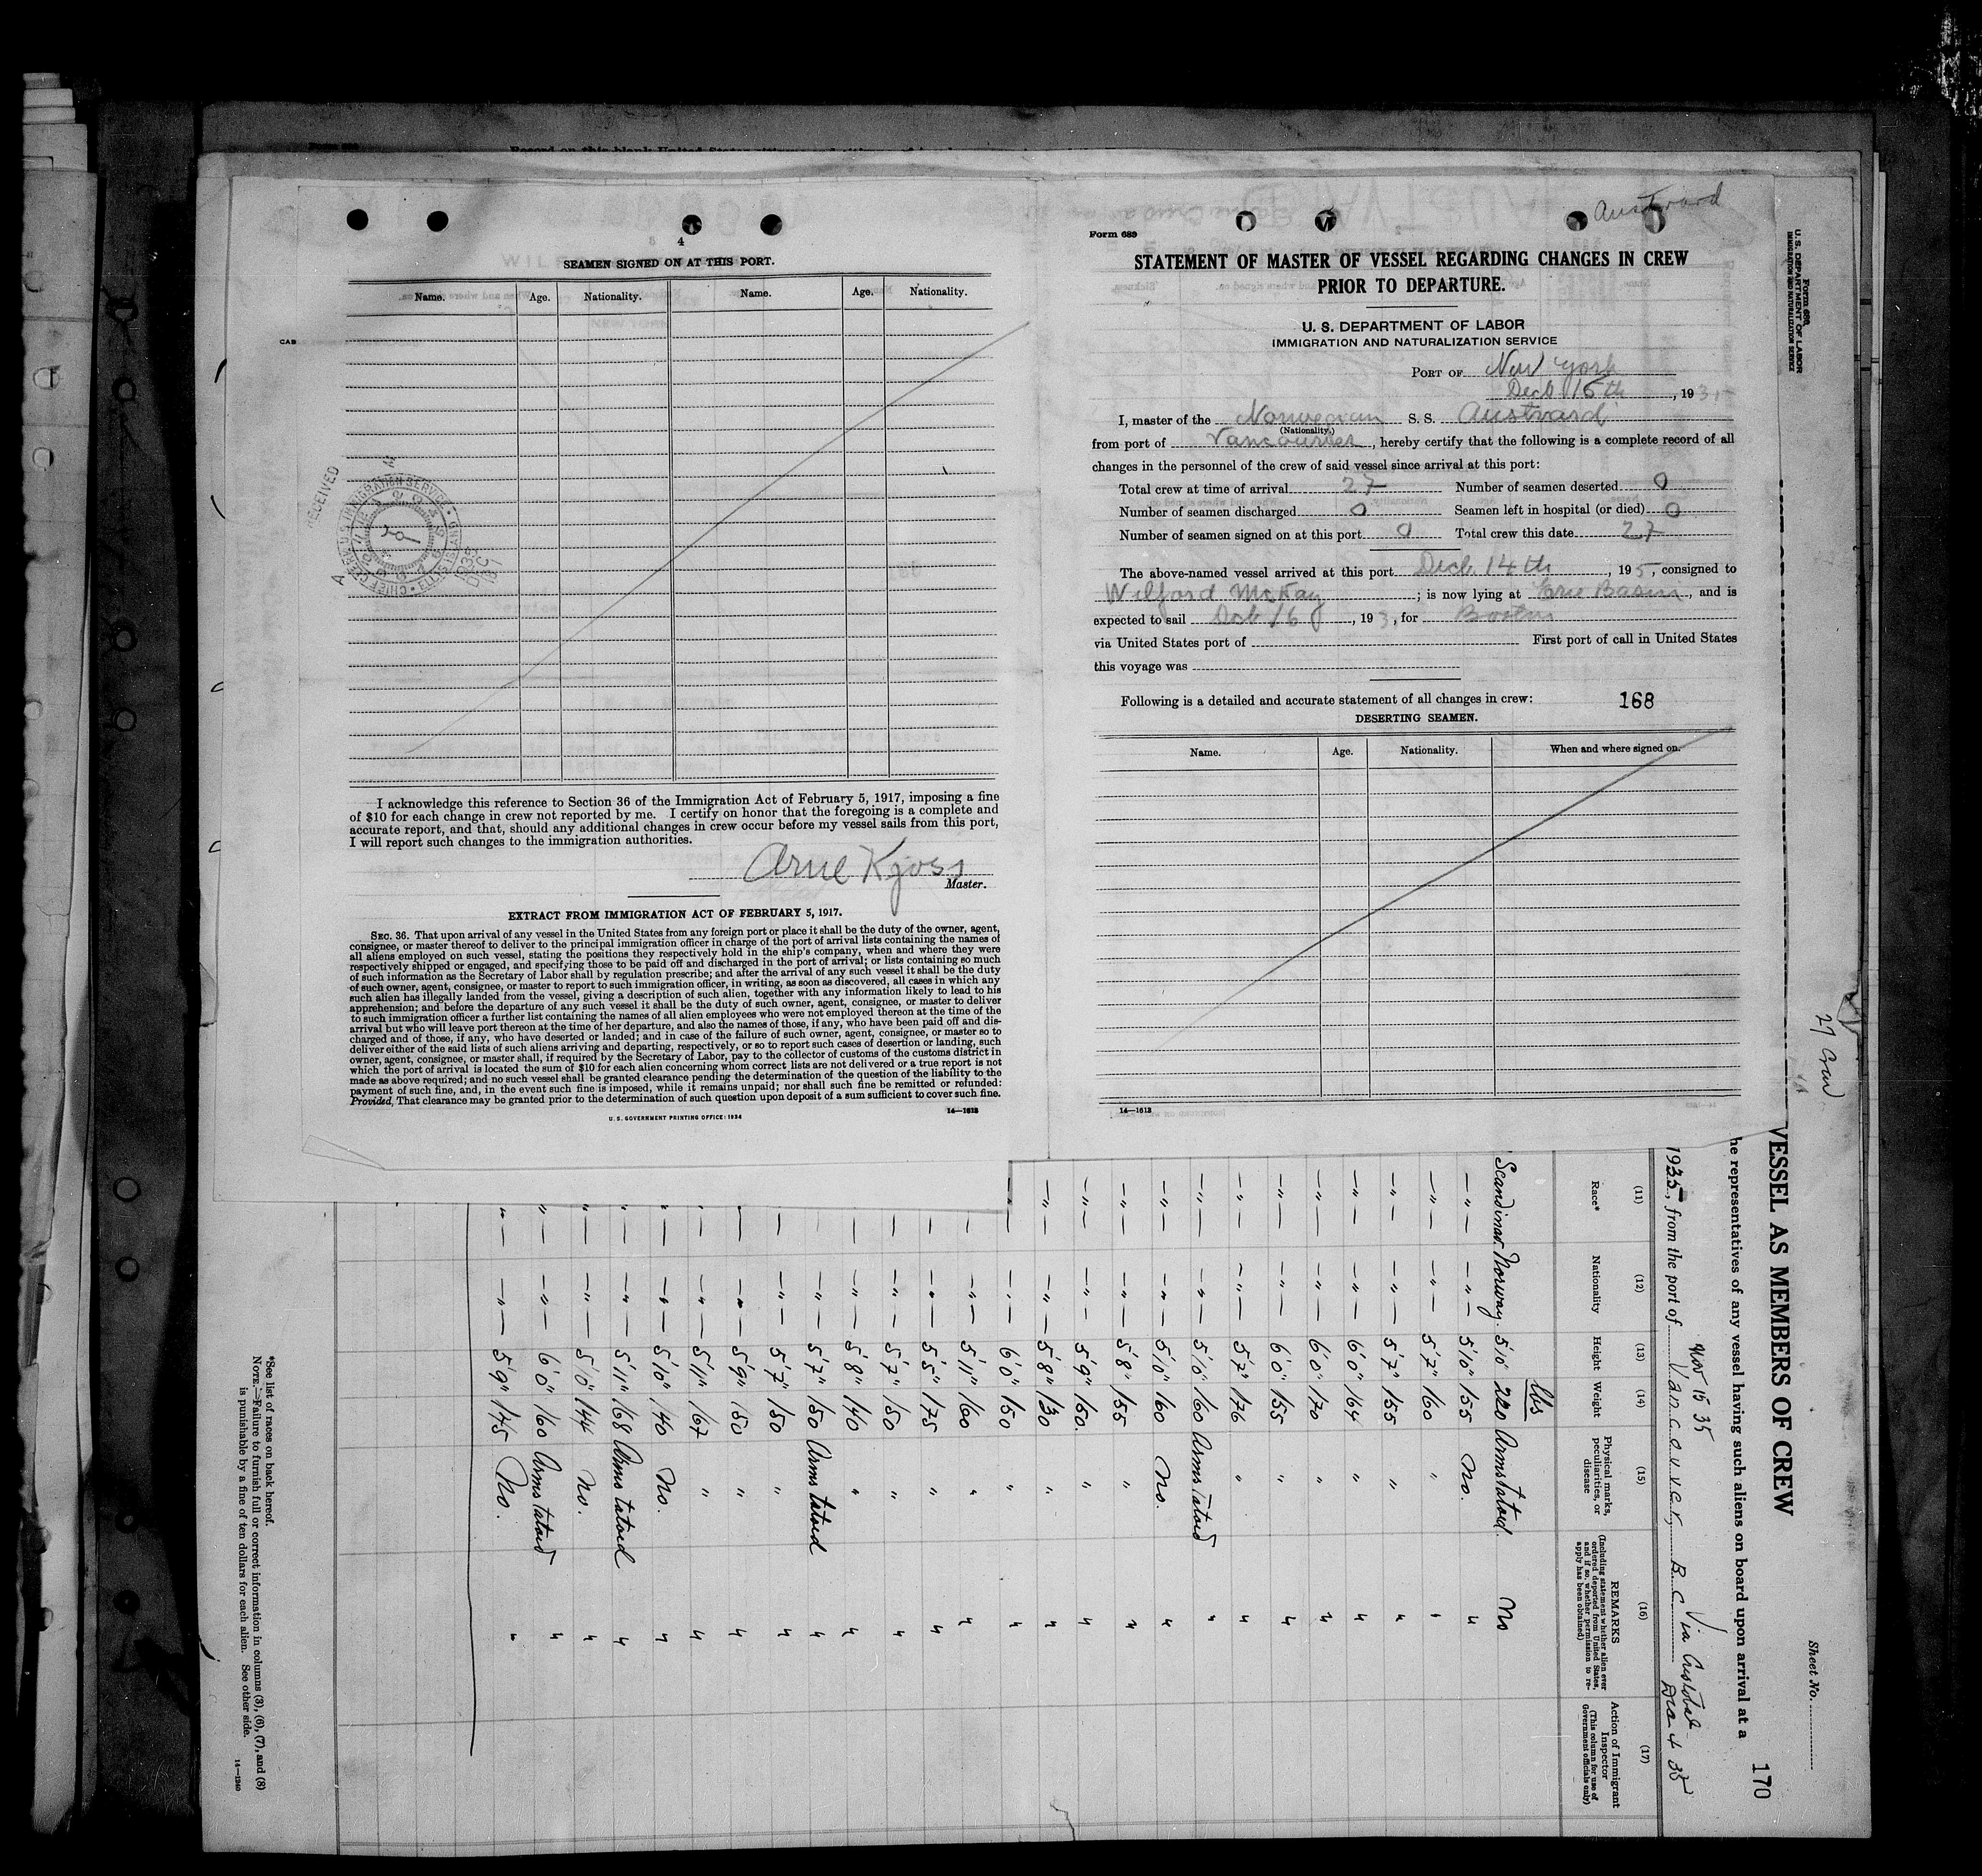 4
SEAMEN SIGNED ON AT THIS PORT.
Name. Age. Nationality. Name. Age. Nationality.
CAB
RECEIVED
I acknowledge this reference to Section 36 of the Immigration Act of February 5, 1917, imposing a fine
of $10 for each change in crew not reported by me. I certify on honor that the foregoing is a complete and
accurate report, and that, should any additional changes in crew occur before my vessel sails from this port,
I will report such changes to the immigration authorities.
Arne Kjoss
Master.
EXTRACT FROM IMMIGRATION ACT OF FEBRUARY 5, 1917.
SEC. 36. That upon arrival of any vessel in the United States from any foreign port or place it shall be the duty of the owner, agent,
consignee, or master thereof to deliver to the principal immigration officer in charge of the port of arrival lists containing the names of
all aliens employed on such vessel, stating the positions they respectively hold in the ship's company, when and where they were
respectively shipped or engaged, and specifying those to be paid off and discharged in the port of arrival; or lists containing so much
of such information as the Secretary of Labor shall by regulation prescribe; and after the arrival of any such vessel it shall be the duty
of such owner, agent, consignee, or master to report to such immigration officer, in writing, as soon as discovered, all cases in which any
such alien has illegally landed from the vessel, giving a description of such alien, together with any information likely to lead to his
apprehension; and before the departure of any such vessel it shall be the duty of such owner, agent, consignee, or master to deliver
to such immigration officer a further list containing the names of all alien employees who were not employed thereon at the time of the
arrival but who will leave port thereon at the time of her departure, and also the names of those, if any, who have been paid off and dis-
charged and of those, if any, who have deserted or landed; and in case of the failure of such owner, agent, consignee, or master so to
deliver either of the said lists of such aliens arriving and departing, respectively, or so to report such cases of desertion or landing, such
owner, agent, consignee, or master shall, if required by the Secretary of Labor, pay to the collector of customs of the customs district in
which the port of arrival is located the sum of $10 for each alien concerning whom correct lists are not delivered or a true report is not
made as above required; and no such vessel shall be granted clearance pending the determination of the question of the liability to the
payment of such fine, and, in the event such fine is imposed, while it remains unpaid; nor shall such fine be remitted or refunded:
Provided, That clearance may be granted prior to the determination of such question upon deposit of a sum sufficient to cover such fine.
U. S. GOVERNMENT PRINTING OFFICE: 1934 14—1613
Austvard
Form 689
STATEMENT OF MASTER OF VESSEL REGARDING CHANGES IN CREW
PRIOR TO DEPARTURE.
U. S. DEPARTMENT OF LABOR
IMMIGRATION AND NATURALIZATION SERVICE
PORT OF New York
Decb 15th, 1935
I, master of the Norwegian S. S. Austvard
(Nationality.)
from port of Vancouver, hereby certify that the following is a complete record of all
changes in the personnel of the crew of said vessel since arrival at this port:
Total crew at time of arrival 27 Number of seamen deserted 0
Number of seamen discharged 0 Seamen left in hospital (or died) 0
Number of seamen signed on at this port 0 Total crew this date 27
The above-named vessel arrived at this port Decb. 14th, 195, consigned to
Wilford McKay; is now lying at Erie Basin, and is
expected to sail Decb 16, 193, for Boston
via United States port of First port of call in United States
this voyage was
Following is a detailed and accurate statement of all changes in crew: 168
DESERTING SEAMEN.
Name. Age. Nationality. When and where signed on.
14—1613
Form 688
U. S. DEPARTMENT OF LABOR
IMMIGRATION AND NATURALIZATION SERVICE
27 Crew
Sheet No.
170
VESSEL AS MEMBERS OF CREW
he representatives of any vessel having such aliens on board upon arrival at a
Nov 15 35 Via Cristobal
1935, from the port of Vancouver B.C. Dec 4 35
(11) (12) (13) (14) (15) (16) (17)
Race* Nationality Height Weight Physical marks, peculiarities, or disease REMARKS (Including statement whether alien ever ordered deported from United States, and if so, whether permission to re-apply has been obtained) Action of Immigrant Inspector (This column for use of Government officials only)
lbs
Scandinav. Norway 5'10" 220 Arms tatoed. No
—"— —"— 5'10" 155 No. "
—"— —"— 5'7" 160 " "
—"— —"— 5'7" 155 " "
—"— —"— 6'0" 164 " "
—"— —"— 6'0" 170 " "
—"— —"— 6'0" 155 " "
—"— —"— 5'7" 176 " "
—"— —"— 5'10" 160 Arms tatoed "
—"— —"— 5'10" 160 No. "
—"— —"— 5'8" 155 " "
—"— —"— 5'9" 160. " "
—"— —"— 5'8" 130 " "
—"— 6'0" 150 " "
—"— 5'11" 160 " "
—"— 5'5" 175 " "
—"— 5'7" 150 " "
—"— 5'8" 140 " "
—"— 5'7" 150 Arms tatoed "
—"— 5'7" 150 " "
—"— 5'9" 150 " "
—"— 5'11" 167 " "
—"— 5'10" 140 No. "
—"— 5'11" 168 Arms tatoed "
—"— 5'10" 144 No. "
—"— 6'0" 160 Arms tatoed "
—"— 5'9" 145 No. "
*See list of races on back hereof.
NOTE.—Failure to furnish full or correct information in columns (3), (6), (7), and (8)
is punishable by a fine of ten dollars for each alien. See other side.
14—1240